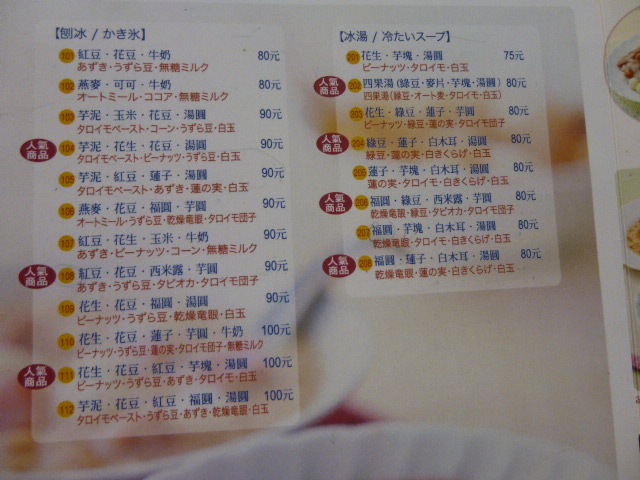 【刨冰 / かき氷】
101 紅豆·花豆·牛奶 80元
あずき·うずら豆·無糖ミルク
102 燕麥·可可·牛奶 80元
オートミール·ココア·無糖ミルク
103 芋泥·玉米·花豆·湯圓 90元
タロイモペースト·コーン·うずら豆·白玉
人氣商品 104 芋泥·花生·花豆·湯圓 90元
タロイモペースト·ピーナッツ·うずら豆·白玉
105 芋泥·紅豆·蓮子·湯圓 90元
タロイモペースト·あずき·蓮の実·白玉
106 燕麥·花豆·福圓·芋圓 90元
オートミール·うずら豆·乾燥竜眼·タロイモ団子
107 紅豆·花生·玉米·牛奶 90元
あずき·ピーナッツ·コーン·無糖ミルク
人氣商品 108 紅豆·花豆·西米露·芋圓 90元
あずき·うずら豆·タピオカ·タロイモ団子
109 花生·花豆·福圓·湯圓 90元
ピーナッツ·うずら豆·乾燥竜眼·白玉
110 花生·花豆·蓮子·芋圓·牛奶 100元
ピーナッツ·うずら豆·蓮の実·タロイモ団子·無糖ミルク
人氣商品 111 花生·花豆·紅豆·芋塊·湯圓 100元
ピーナッツ·うずら豆·あずき·タロイモ·白玉
112 芋泥·花豆·紅豆·福圓·湯圓 100元
タロイモペースト·うずら豆·あずき·乾燥竜眼·白玉
【冰湯 / 冷たいスープ】
201 花生·芋塊·湯圓 75元
ピーナッツ·タロイモ·白玉
人氣商品 202 四果湯(綠豆·麥片·芋塊·湯圓) 80元
四果湯(緑豆·オート麦·タロイモ·白玉)
203 花生·綠豆·蓮子·芋圓 80元
ピーナッツ·緑豆·蓮の実·タロイモ団子
人氣商品 204 綠豆·蓮子·白木耳·湯圓 80元
緑豆·蓮の実·白きくらげ·白玉
205 蓮子·芋塊·白木耳·湯圓 80元
蓮の実·タロイモ·白きくらげ·白玉
人氣商品 206 福圓·綠豆·西米露·芋圓 80元
乾燥竜眼·緑豆·タピオカ·タロイモ団子
207 福圓·芋塊·白木耳·湯圓 80元
乾燥竜眼·タロイモ·白きくらげ·白玉
人氣商品 208 福圓·蓮子·白木耳·湯圓 80元
乾燥竜眼·蓮の実·白きくらげ·白玉